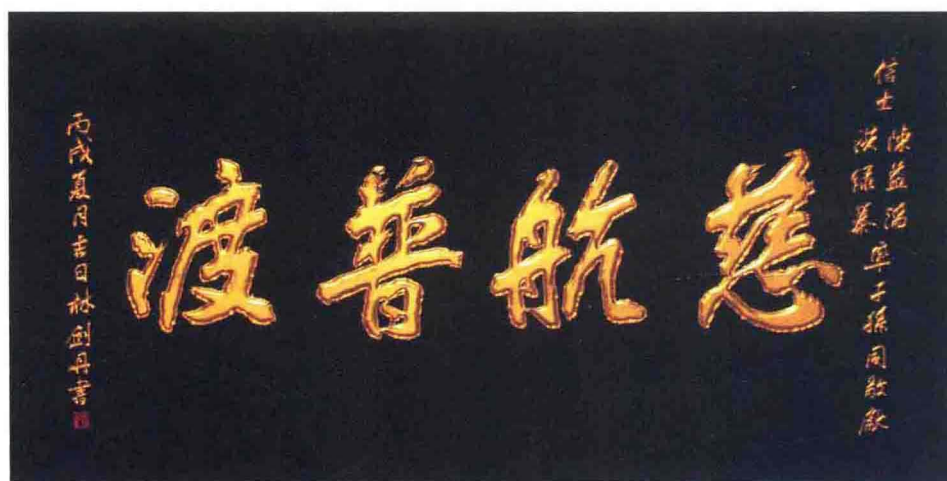 信士 陳益滔
洪绿萘 率子孫同敬獻
慈航普渡
丙戌夏月吉日林劍丹書